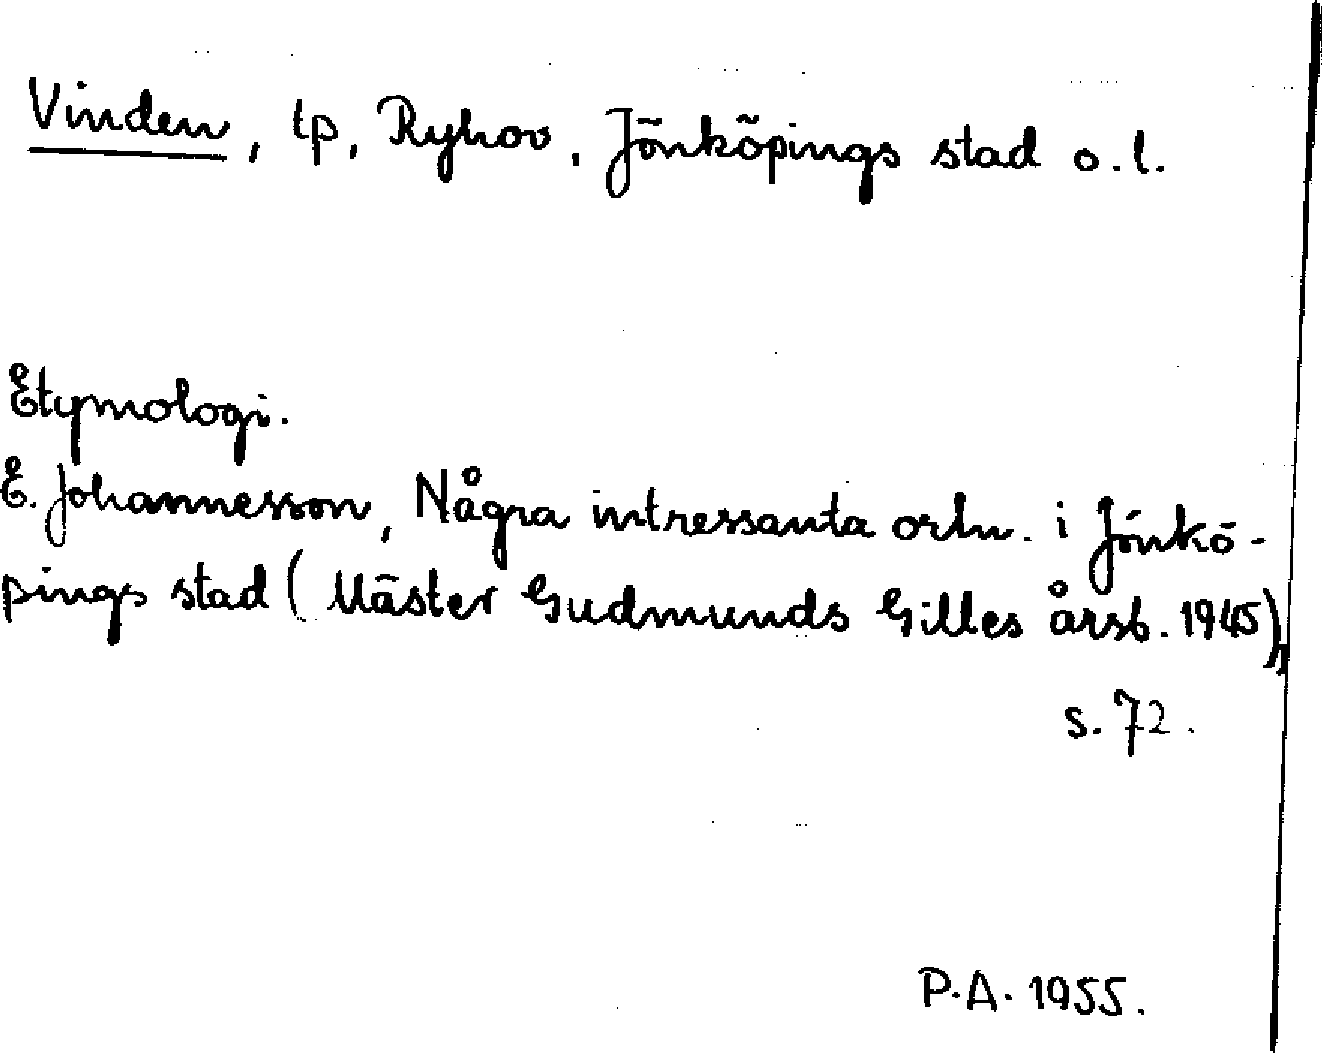 Vinden, tp, Ryhov, Jönköpings stad o.l.
Etymologi.
E. Johannesson, Några intressanta ortn. i Jönkö-
pings stad (Mäster Gudmunds Gilles årsb. 1945),
s. 72.
P.A. 1955.